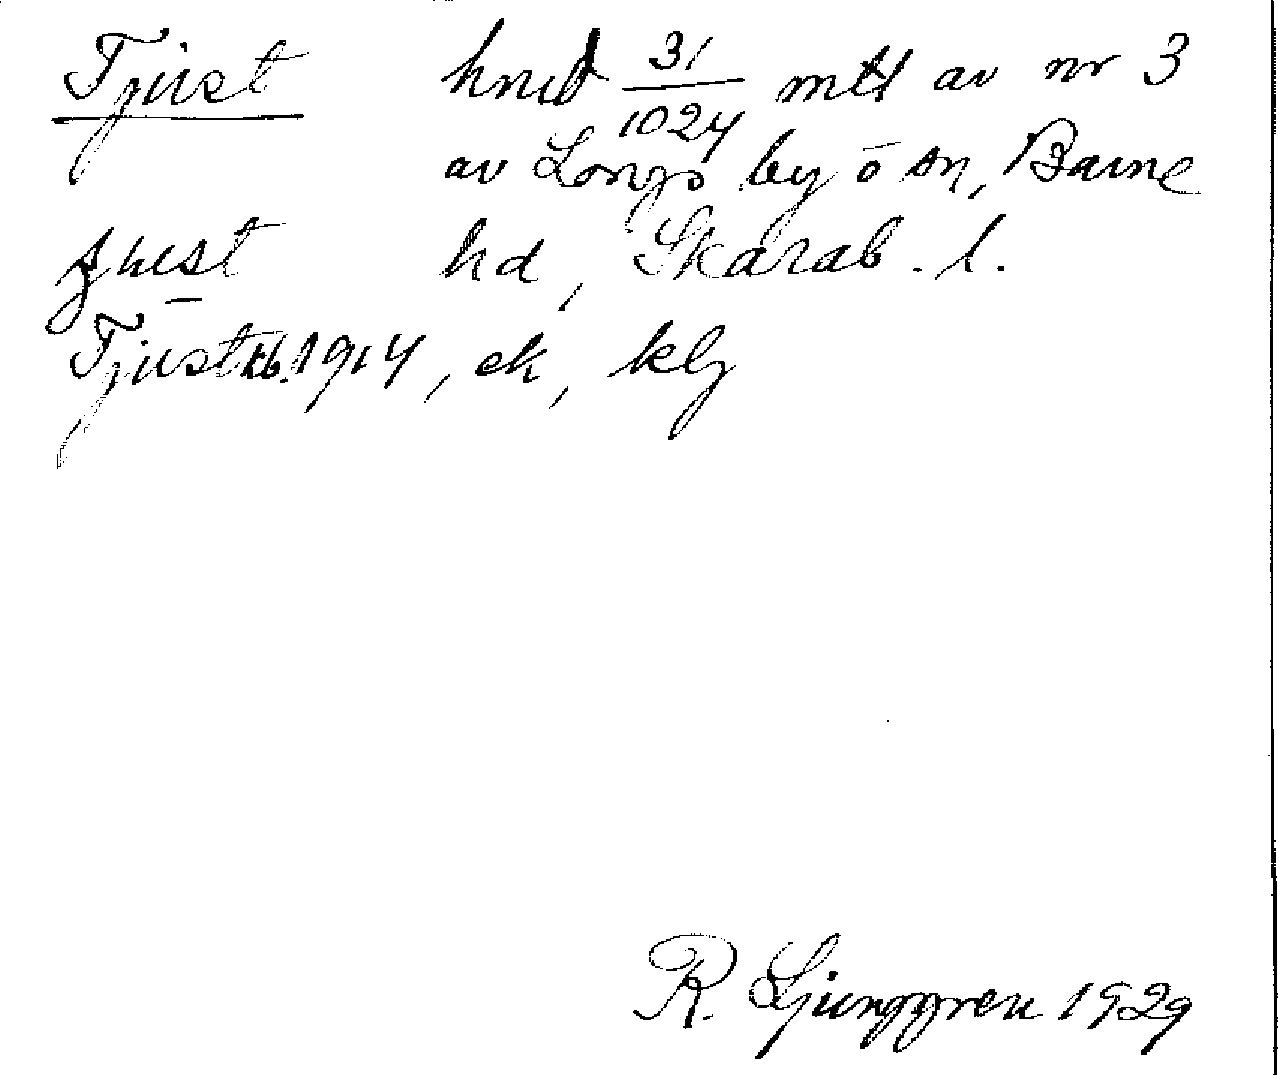 Tjust hmd 31/1024 mtl av nr 3
av Longs by ö sn, Barne
hd, Skarab. l.
Tjust kb. 1914, ek, klg
R. Ljunggren 1929